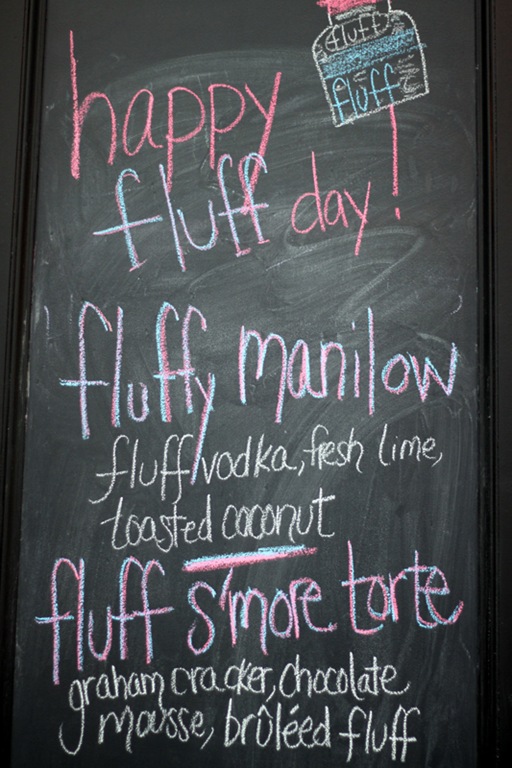 fluff
fluff
happy
fluff day!
fluffy manilow
fluff vodka, fresh lime,
toasted coconut
fluff s'more torte
graham cracker, chocolate
mousse, brûléed fluff